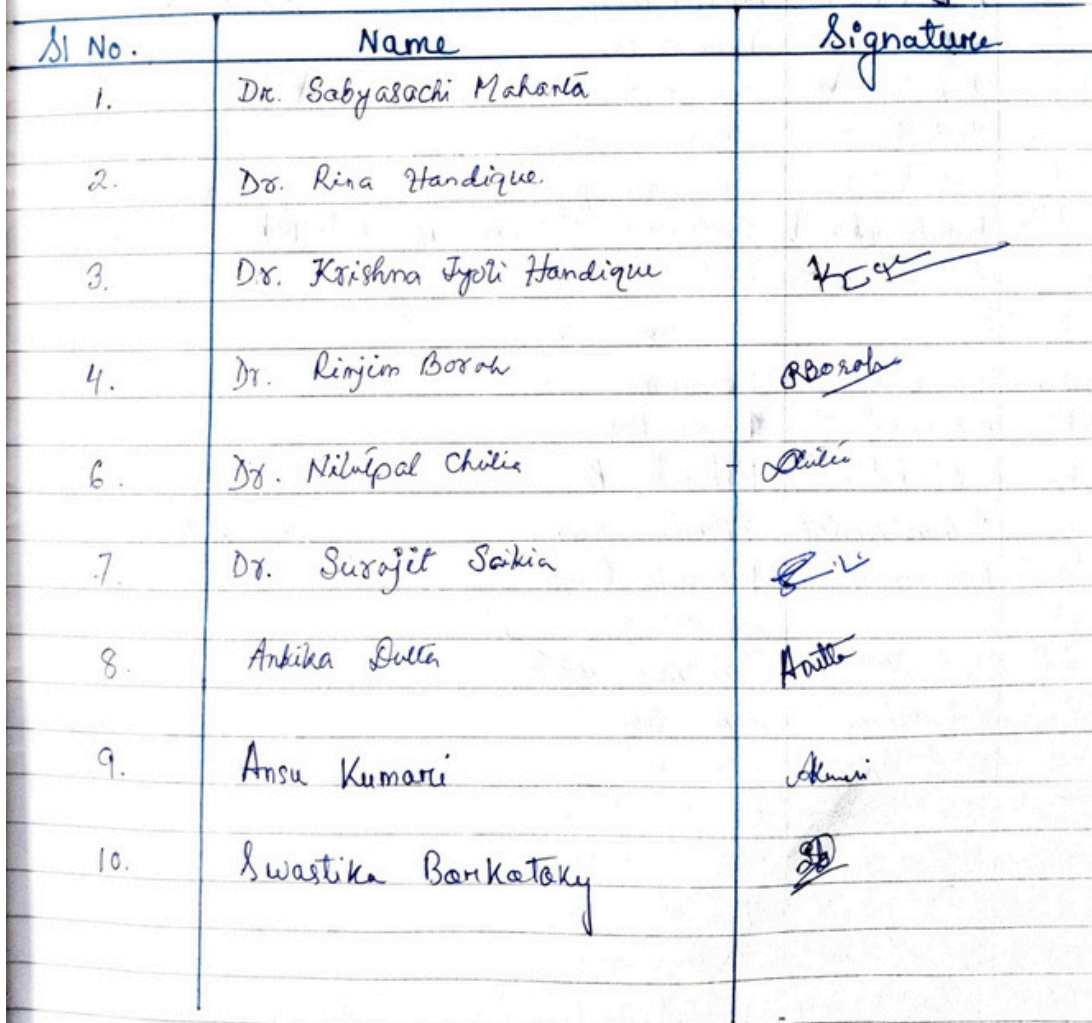 Sl No. Name Signature
1. Dr. Sabyasachi Mahanta
2. Dr. Rina Handique.
3. Dr. Krishna Jyoti Handique
4. Dr. Rimjim Borah RBorah
6. Dr. Nilutpal Chutia - Chutia
7. Dr. Surajit Saikia
8. Ankika Dutta ADutta
9. Ansu Kumari AKumari
10. Swastika Borkotoky